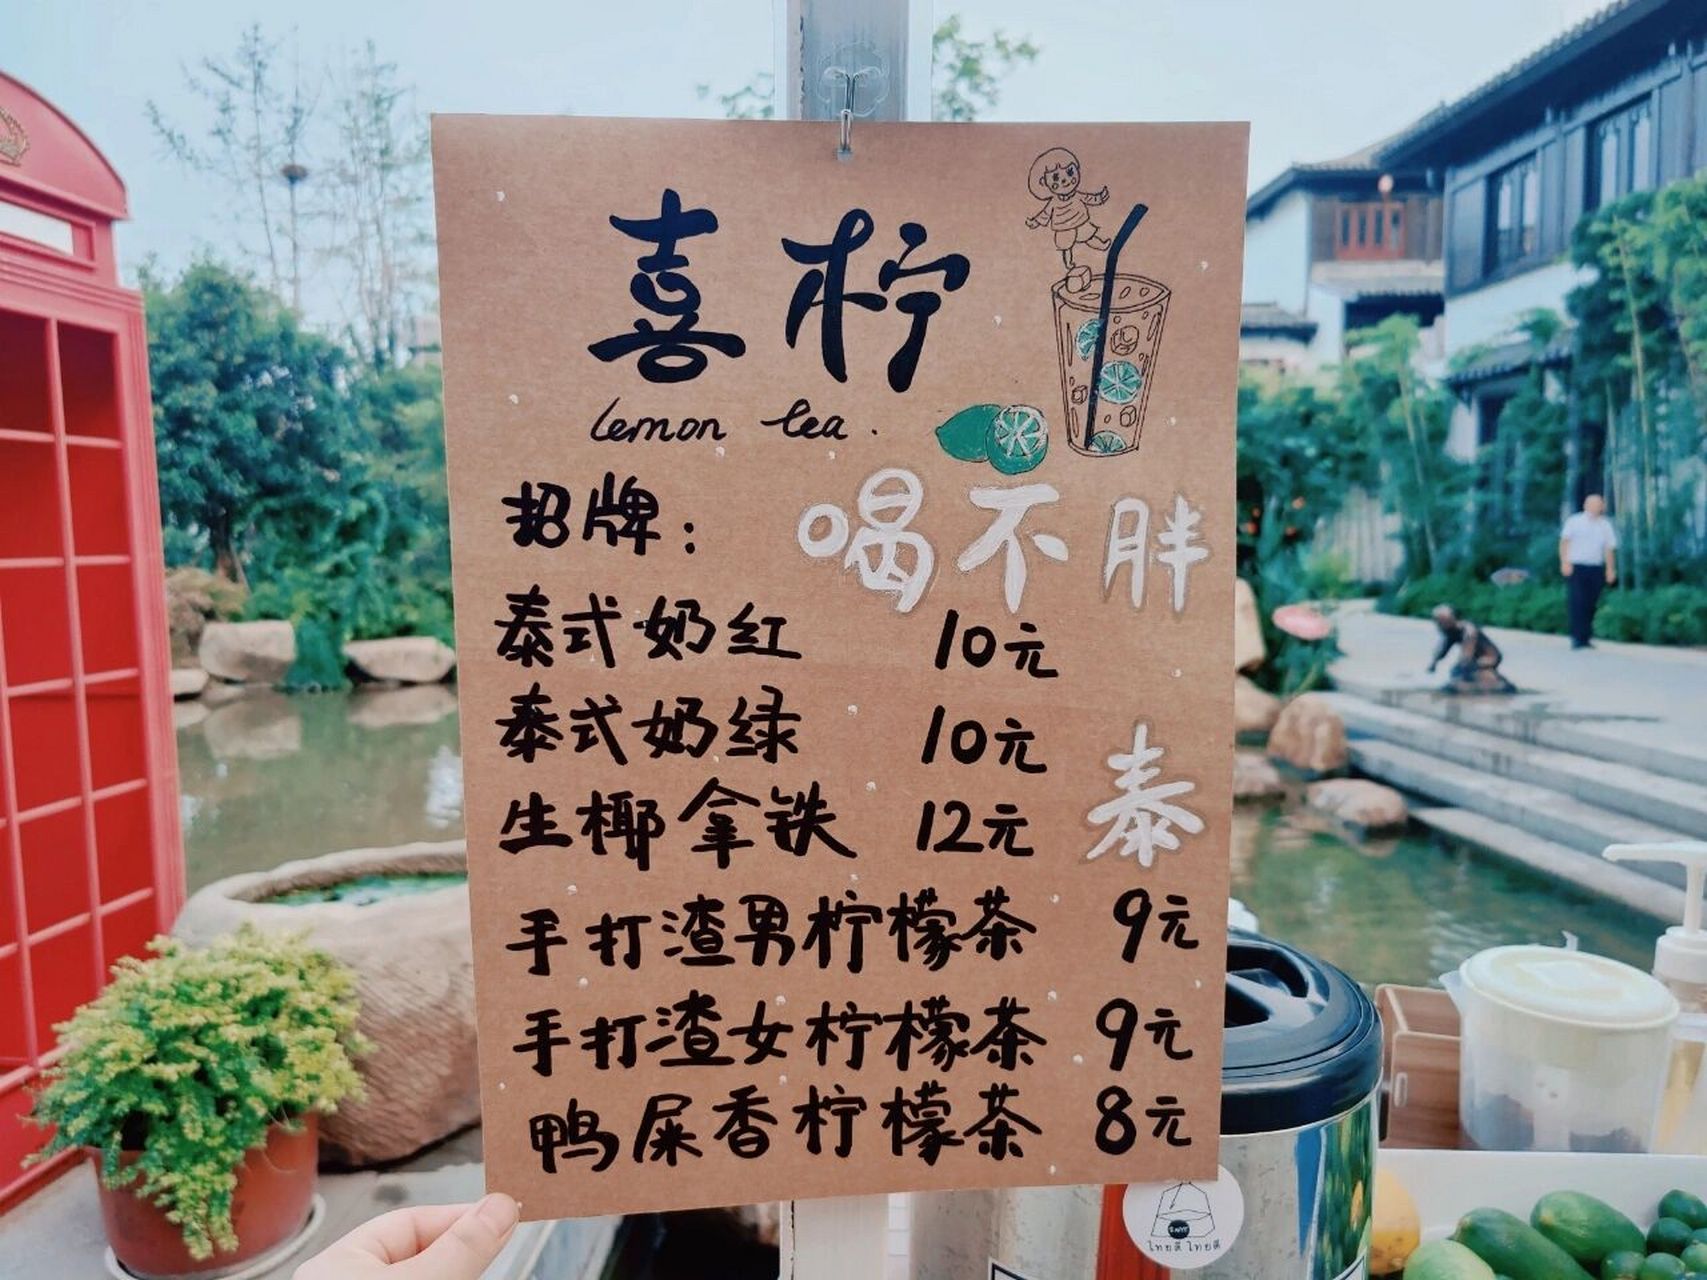 喜柠
lemon tea.
招牌：
喝不胖
泰式奶红 10元
泰式奶绿 10元
生椰拿铁 12元
泰
手打渣男柠檬茶 9元
手打渣女柠檬茶 9元
鸭屎香柠檬茶 8元
ไทยดี ไทยดี